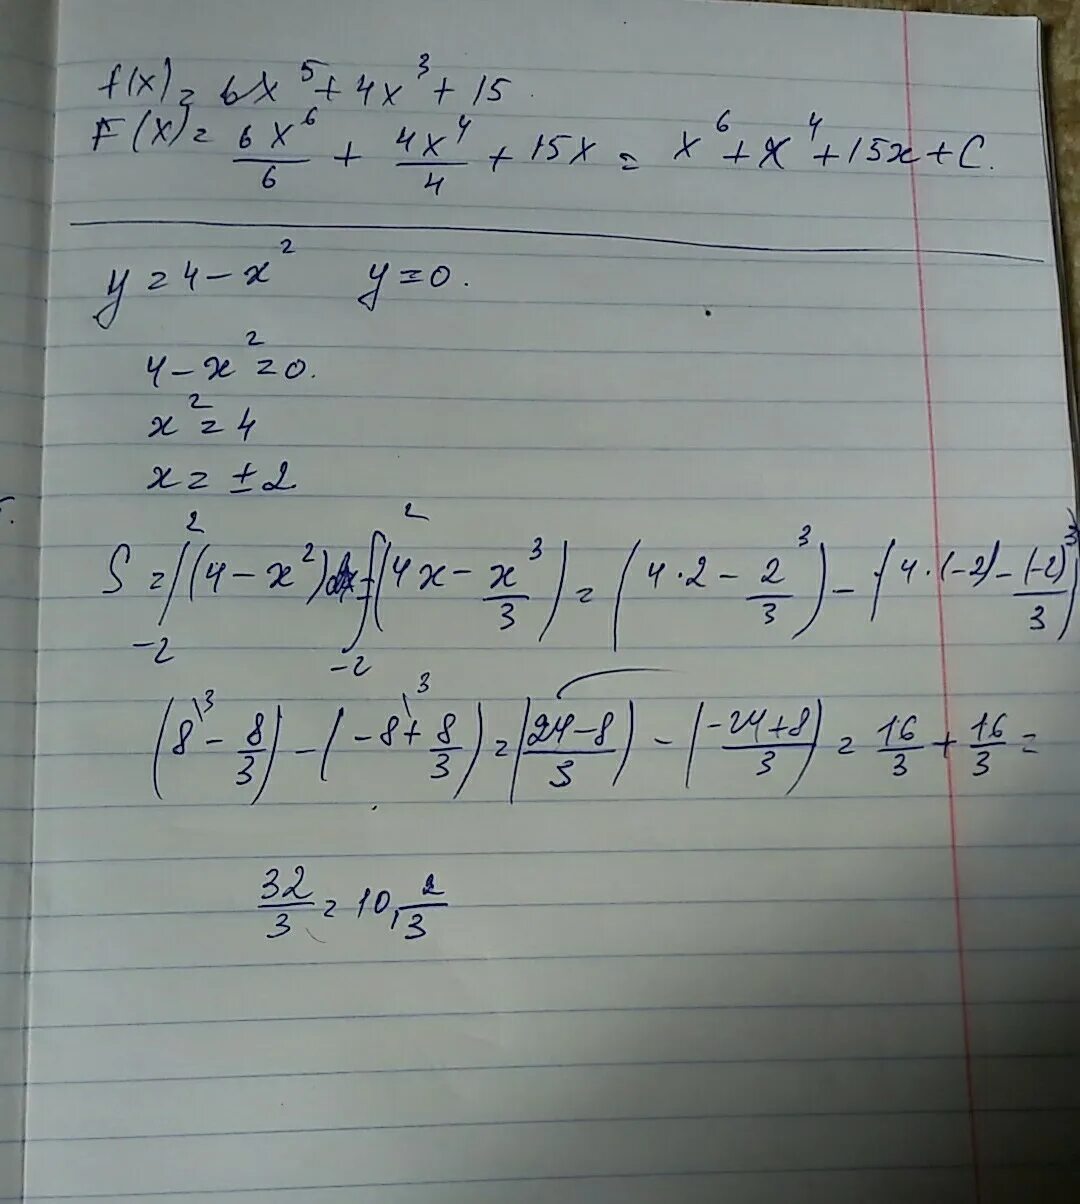 f(x) = 6x⁵ + 4x³ + 15
F(x) = 6x⁶/6 + 4x⁴/4 + 15x = x⁶ + x⁴ + 15x + C.
y = 4 - x² y = 0.
4 - x² = 0.
x² = 4
x = ± 2
S = ∫₋₂² (4 - x²) dx = ∫₋₂² (4x - x³/3) = (4·2 - 2³/3) - (4·(-2) - (-2)³/3)
(8\³ - 8/3) - (-8\³ + 8/3) = (24-8/3) - (-24+8/3) = 16/3 + 16/3 =
32/3 = 10, 2/3